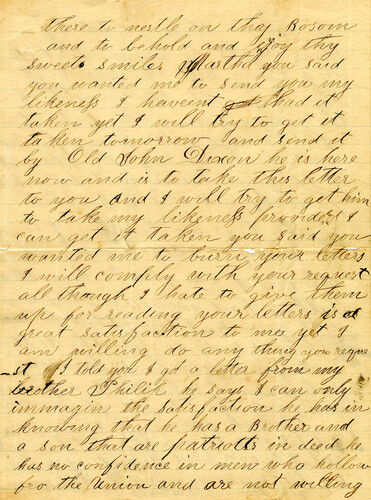 there to nestle on thy Bosom
and to behold and Injoy thy
sweet smiles Martha you said
you wanted me to send you my
likeness I havent had it
taken yet I will try to get it
taken tomorrow and send it
by Old John Dixon he is here
now and is to take this letter
to you and I will try to get him
to take my likeness providers I
can get it taken you said you
wanted me to burn your letters
I will comply with your request
all though I hate to give them
up for reading your letters is a
great satisfaction to me yet I
am willing do any thing you reque
-st I told you I got a letter from my
brother Philip he says I can only
immagin the satisfaction he has in
knowing that he has a Brother and
a son that are patriotts in deed he
has no confidence in men who hollow
fro the Union and are not willing